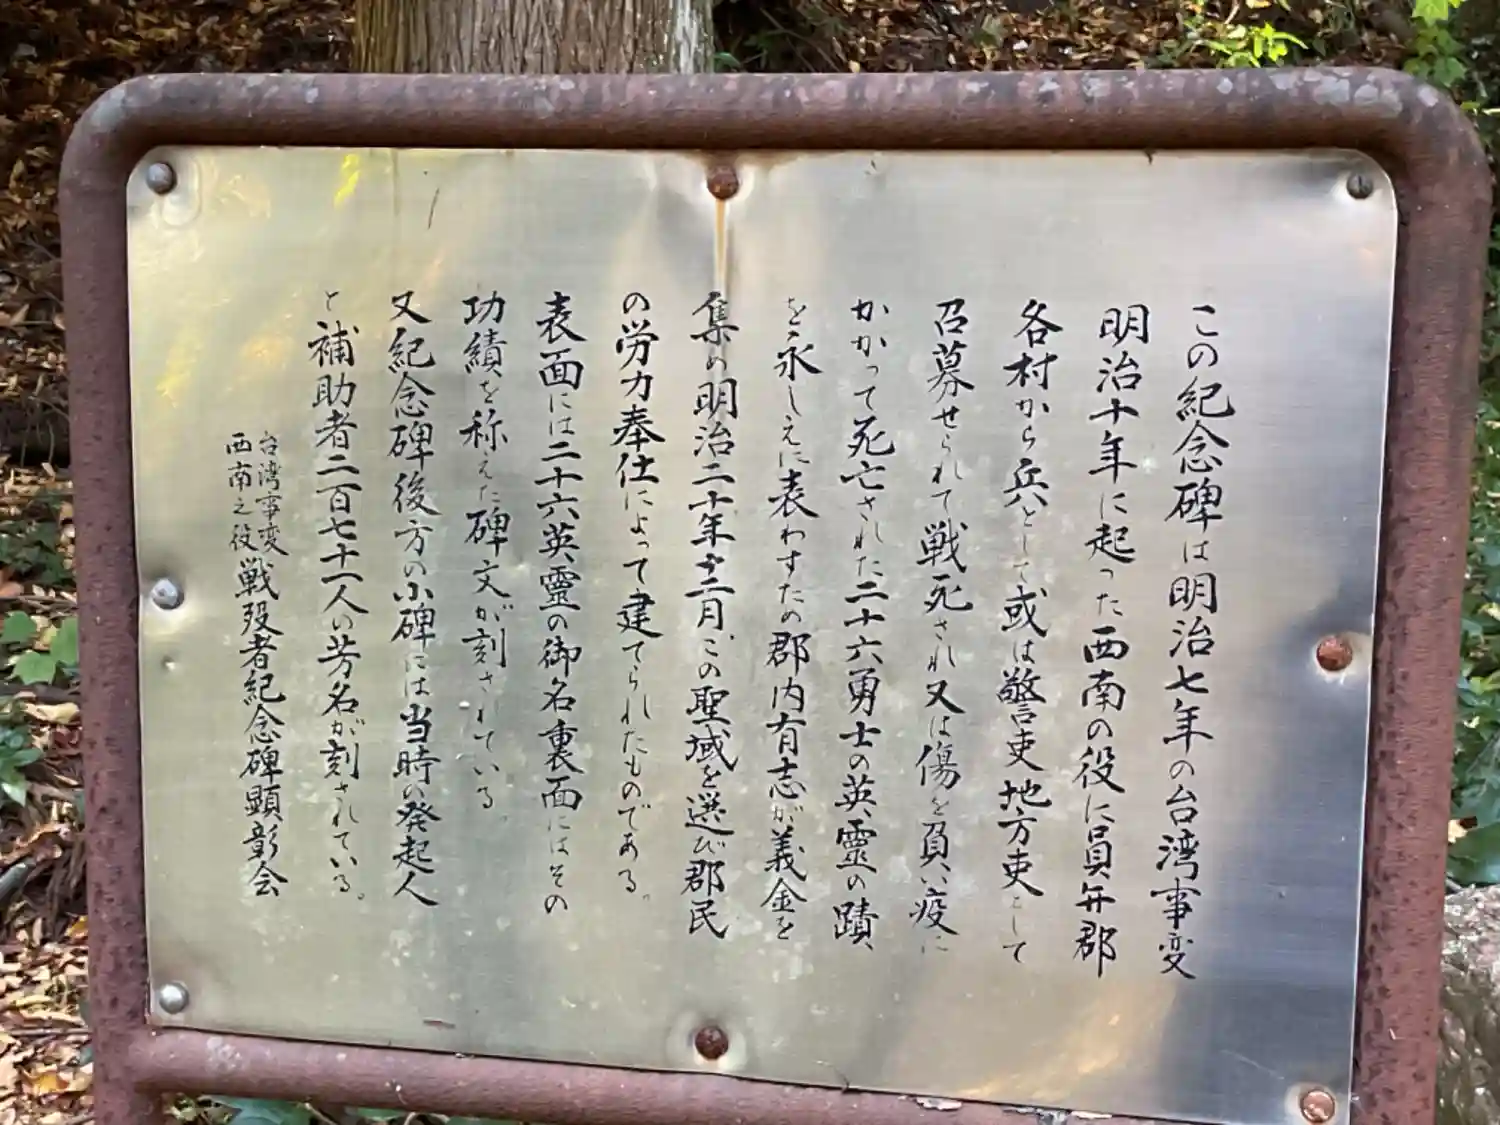 この紀念碑は明治七年の台湾事変
明治十年に起った西南の役に員弁郡
各村から兵として或は警吏地方吏として
召募せられて戦死され又は傷を負い疫に
かかって死亡された二十六勇士の英霊の蹟
を永しえに表わすため郡内有志が義金を
集め明治二十年十二月、この聖域を選び郡民
の労力奉仕によって建てられたものである。
表面には二十六英霊の御名裏面にはその
功績を称えた碑文が刻されている。
又紀念碑後方の小碑には当時の発起人
と補助者二百七十一人の芳名が刻されている。
台湾事変
西南之役
戦歿者紀念碑顕彰会